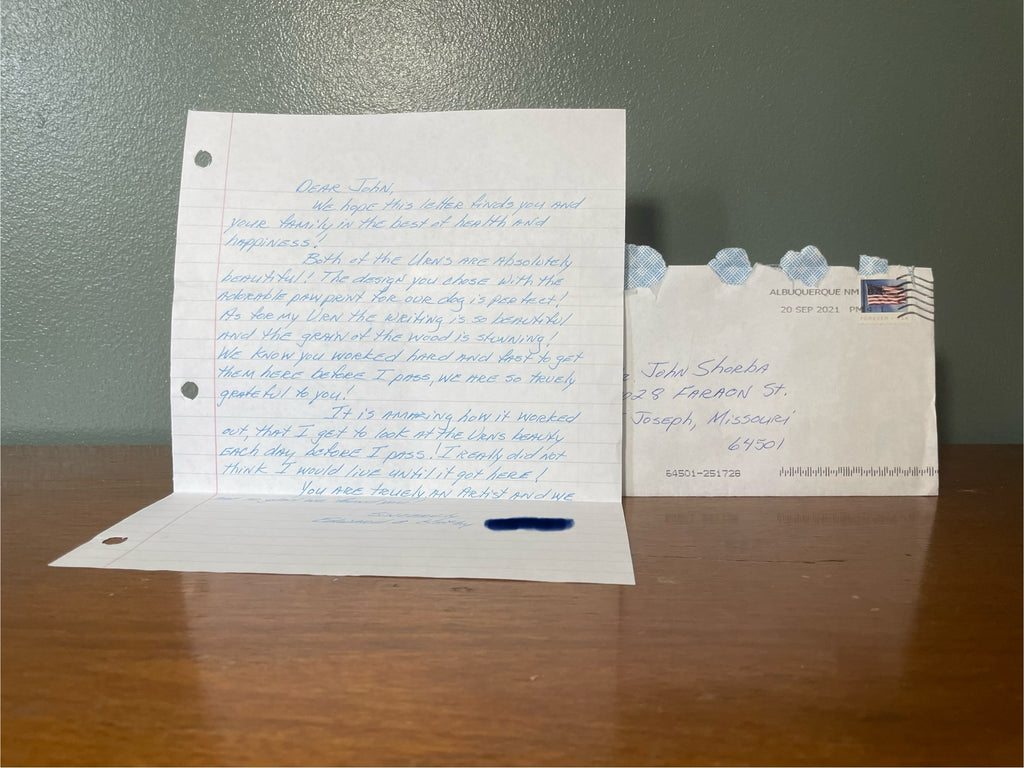 Dear John,
We hope this letter finds you and
your family in the best of health and
happiness!
Both of the Urns are absolutely
beautiful! The design you chose with the
adorable paw print for our dog is perfect!
As for my Urn the writing is so beautiful
and the grain of the wood is stunning!
We know you worked hard and fast to get
them here before I pass, we are so truely
grateful to you!
It is amazing how it worked
out, that I get to look at the Urns beauty
each day, before I pass. I really did not
think I would live until it got here!
You are truely an Artist and we
Sincerely
ALBUQUERQUE NM
20 SEP 2021 PM
FOREVER
John Shorba
28 Faraon St.
Joseph, Missouri
64501
64501-251728